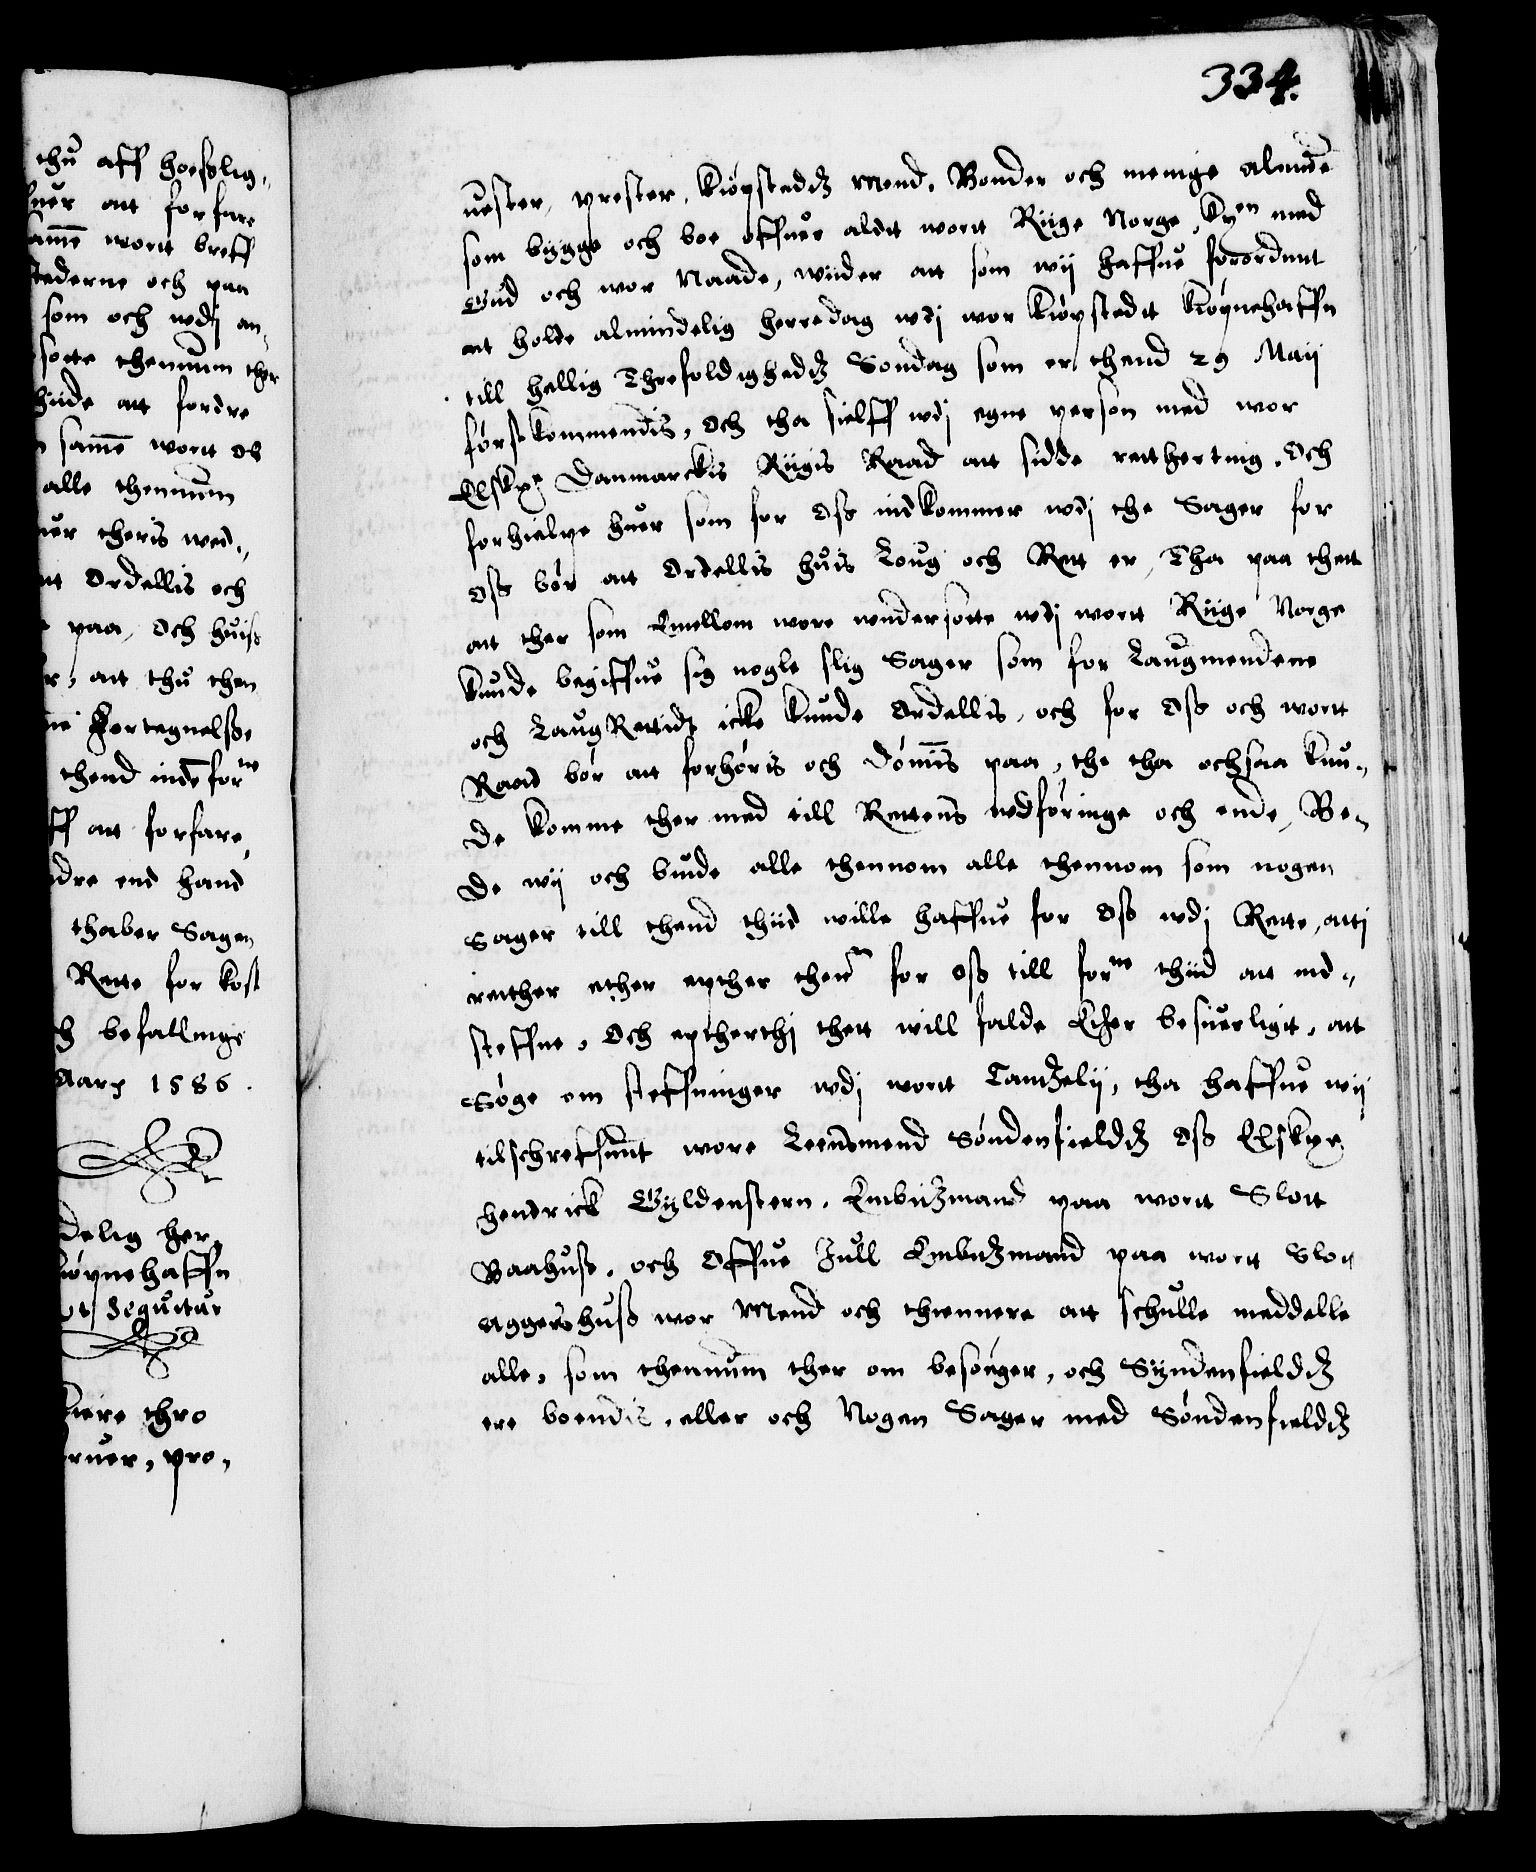 thu aff hoeßlig„
fuer att forfare
same wortt breff
stederne och paa
som och wdj an„
sotte thennum ther
hiide att fordre
same wortt ob
alle thennum
uer theris wed„
att Ordellis och
paa, Och huiß
r, att thu then
Fortegnelsse
thend inde forne
ff att forfare,
dre end hand
thaber Sagen
Rette for kost
h befallinge
Aars 1586.
delig her„
kiøpnehaffn
vt sequitur
kiere thro
ruer, pro„
334.
uester, prester, kiøpstedz mend, Bønder och menige almue
som bygge och boe offuer aldt wort Riige Norge, Kyen med
Gud och wor Naade, wiider att som wij haffue forordnnt
att holde almindelig herredag wdj wor kiøpstedt kiøpnehaffn
till hellig Threfoldighedz Søndag som er thend 29 Maij
førstkommendis, Och tha sielff wdj egne person med wor
Elskxe Danmarckis Riigis Raad att sidde retthertting, Och
forhielpe huer som for Oß indkommer wdj the Sager for
Oß bør att Ordellis huis Loug och Rett er, Tha paa thett
att ther som Emellom wore wndersotte wdj wortt Riige Norge
kunde begiffue sig nogle slig Sager som for Laugmendene
och LaugRettidt icke kunde Ordellis, och for Oß och wortt
Raad bør att forhøris och dømis paa, the tha ochsaa kun„
de komme ther med till Rettens wdføringe och ende, Be„
de wij och biude alle thennom alle thennom som nogen
Sager till thend thiid wille haffue for Oß wdj Rette, atti
retther ether epther then for Oß till forne thiid att ind„
steffne. Och eptherthj thett will falde Ether besuerligt, att
Søge om steffninger wdj wortt Cantzelij, tha haffue wij
tilschreffuit wore Leensmend Søndenfieldz Oß Elskxe
hendrick Gyldenstern, Embitzmand paa wortt Slott
Baahuß, och Offue Jull Embitzmand paa wortt Slott
Aggershuß wor Mend och thiennere att schulle meddelle
alle, som thennum ther om besøger, och Syndenfieldz
ere boendis, eller och Nogen Sager med Søndenfieldz